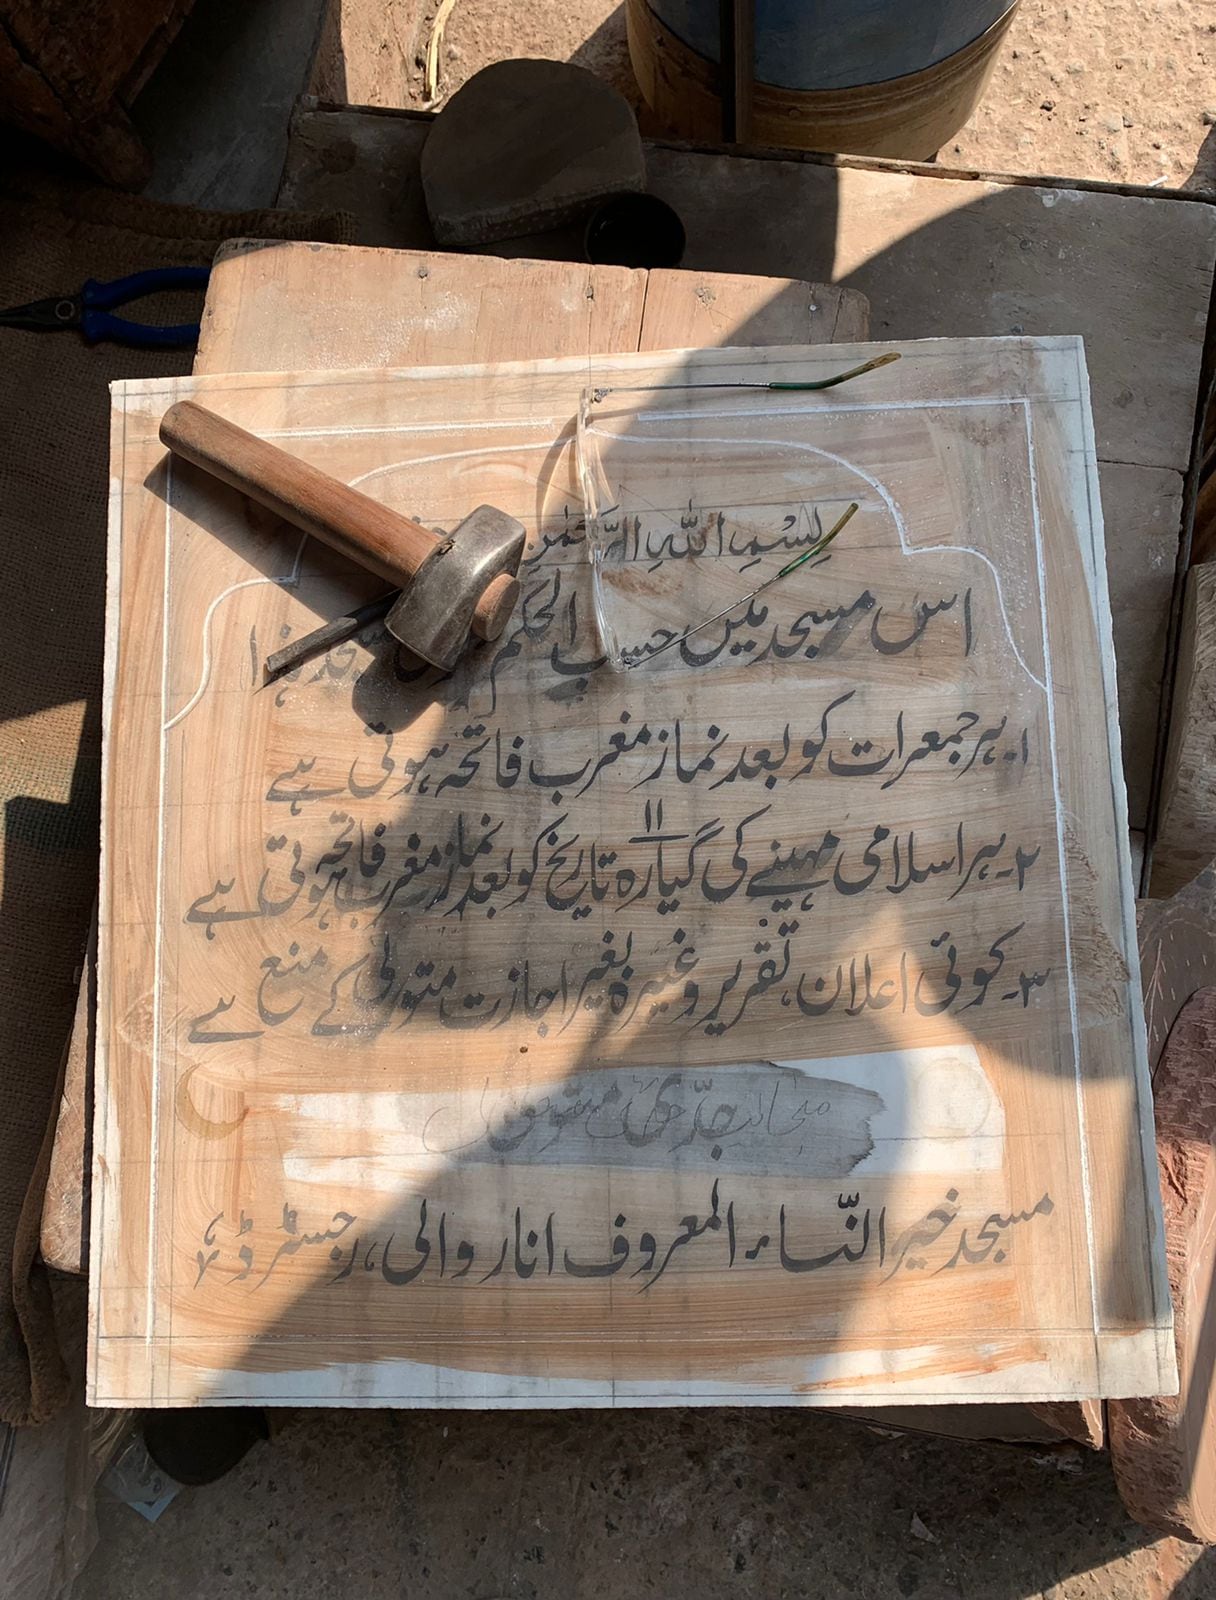 بِسْمِ اللّٰهِ الرَّحْمٰنِ
اس مسجد میں حسب الحکم مسجد ہٰذا
۱۔ ہر جمعرات کو بعد نماز مغرب فاتحہ ہوتی ہے
۲۔ ہر اسلامی مہینے کی گیارہ ۱۱ تاریخ کو بعد نماز مغرب فاتحہ ہوتی ہے
۳۔ کوئی اعلان، تقریر وغیرہ بغیر اجازت متولی کے منع ہے
مسجد خیر النّساء المعروف انار والی، رجسٹرڈ